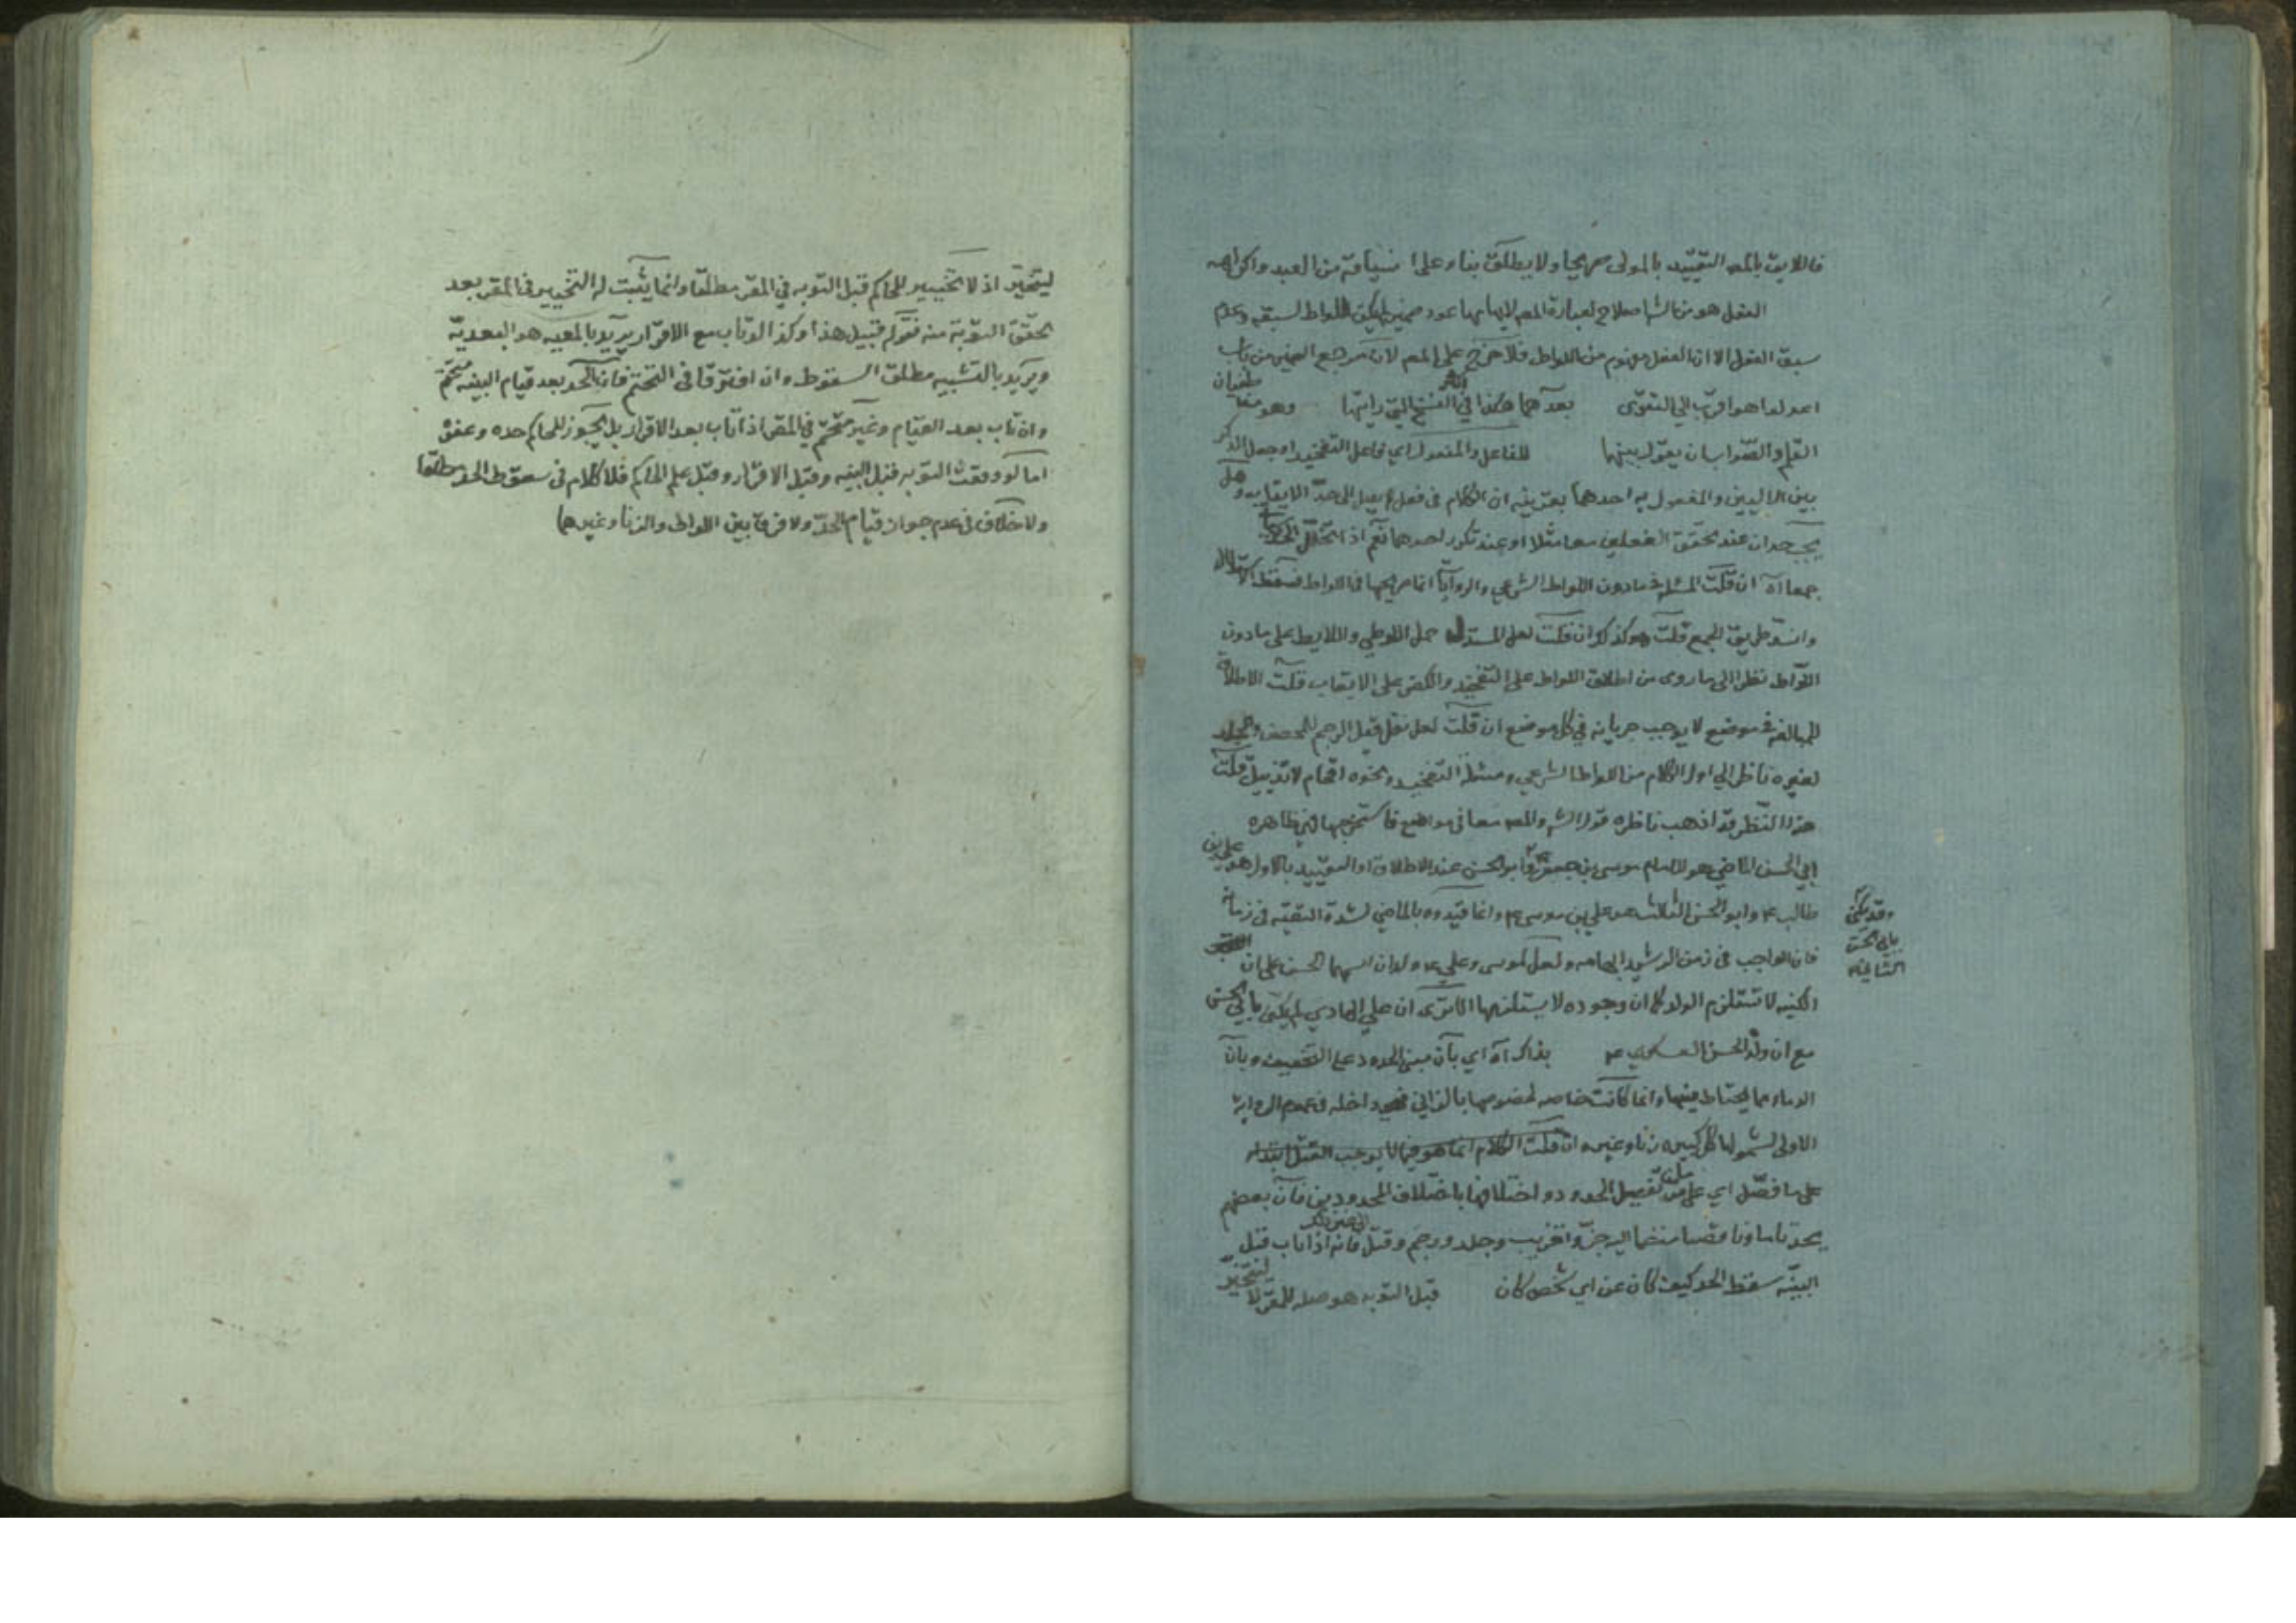 فاللايق بالمصـ التقييد بالمولى صريحا ولا يطلق بناء على من العبد واكراهه
القول هو من الشـ اصلاح لعبارة المصـ لايهامها عود ضمير للواط لسبقه وعدم
سبق الفعل الا ان الفعل مفهوم من اللواط فلا حرج على المصـ لان مرجع الضمير من باب
اعدلوا هو اقرب للتقوى بعدهما هكذا في النسخ التي رايتها وهو من طغيان
القلم والصواب ان يقول بينهما للفاعل والمفعول اي فاعل التفخيذ او جعل الذكر
بين الاليين والمفعول به احدهما بقرينة ان الكلام في فعل لم يصل الى حد الايقاب وهل
يجب حدان عند تحقق الفعلين معا مثلا او عند تكرر احدهما نعم اذا تخلل الحد
جمعا اه ان قلت المسئلة فيما دون اللواط الشرعي والروايا انما صريحها في اللواط فسقط الاستدلال
وانسد طريق الجمع قلت هو كذلك وان قلت لعل المستدل حمل اللوطي واللايط على ما دون
اللواط نظرا الى ما روى من اطلاق اللواط على التفخيذ والكفر على الايقاب قلت الاطلاق
للمبالغة في موضع لا يوجب جريانه في كل موضع ان قلت لعل نقل قيل الرجم للمحصن والجلد
لغيره ناظر الى اول الكلام من اللواط الشرعي ومسئلة التفخيذ ونحوه اقحام لا تذييل قلت
هذا النظر قد اذهب ناظره قول الشـ والمصـ معا في مواضع فاستخرجها فهي ظاهره
ابي الحسن الماضي هو الامام موسى بن جعفر ع وابو الحسن عند الاطلاق او التقييد بالاول هو علي بن
طالب ع وابو الحسن الثالث هو علي بن موسى ع وانما قيدوه بالماضي لشدة التقية في زمانه
وقد يكنى
بابي الحسن
الثاني
فان الواجب في زمن الرشيد ابهامه ولعل لموسى وعلي ع ولدان اسمهما الحسن على ان
الكنيه لا تستلزم الولد كما ان وجوده لا يستلزمها الا ترى ان علي الهادي لم يكن بابي الحسن
مع ان ولده الحسن العسكري ع بذلك اه اي بان مبنى الحدود على التخفيف وبان
الدماء مما يحتاط فيها وانما كانت خاصه لخصوصها بالزاني داخله في عموم الرواية
الاولى لشمولها كل كبيره زنا وغيره ان قلت الكلام انما هو فيما لا يوجب القتل ابتداء
على ما فصل اي على من تفصيل الحدود واختلافها باختلاف المحدودين فان بعضهم
يحد تاما وناقصا منضما اليه جز وتغريب وجلد ورجم وقتل فانه اذا تاب قبل
البينة سقط الحد كيف كان عن اي شخص كان قبل التوبه هو صله للمقر لا ليتخير
ليتخير اذ لا تخيير للحاكم قبل التوبه في المقر مطلقا وانما يثبت له التخيير في المقر بعد
تحقق التوبة منه فقولهم قبيل هذا وكذا لو تاب مع الاقرار يريد بالمعيه هو البعدية
ويريد بالتشبيه مطلق السقوط وان افترقا في التحتم فان الحد بعد قيام البينه متحتم
وان تاب بعد القيام وغير متحتم في المقر اذا تاب بعد الاقرار بل يجوز للحاكم حده وعفوه
اما لو وقعت التوبه قبل البينه وقبل الاقرار وقبل علم الحاكم فلا كلام في سقوط الحد مطلقا
ولا خلاف في عدم جواز قيام الحد ولا فرق بين اللواط والزنا وغيرهما